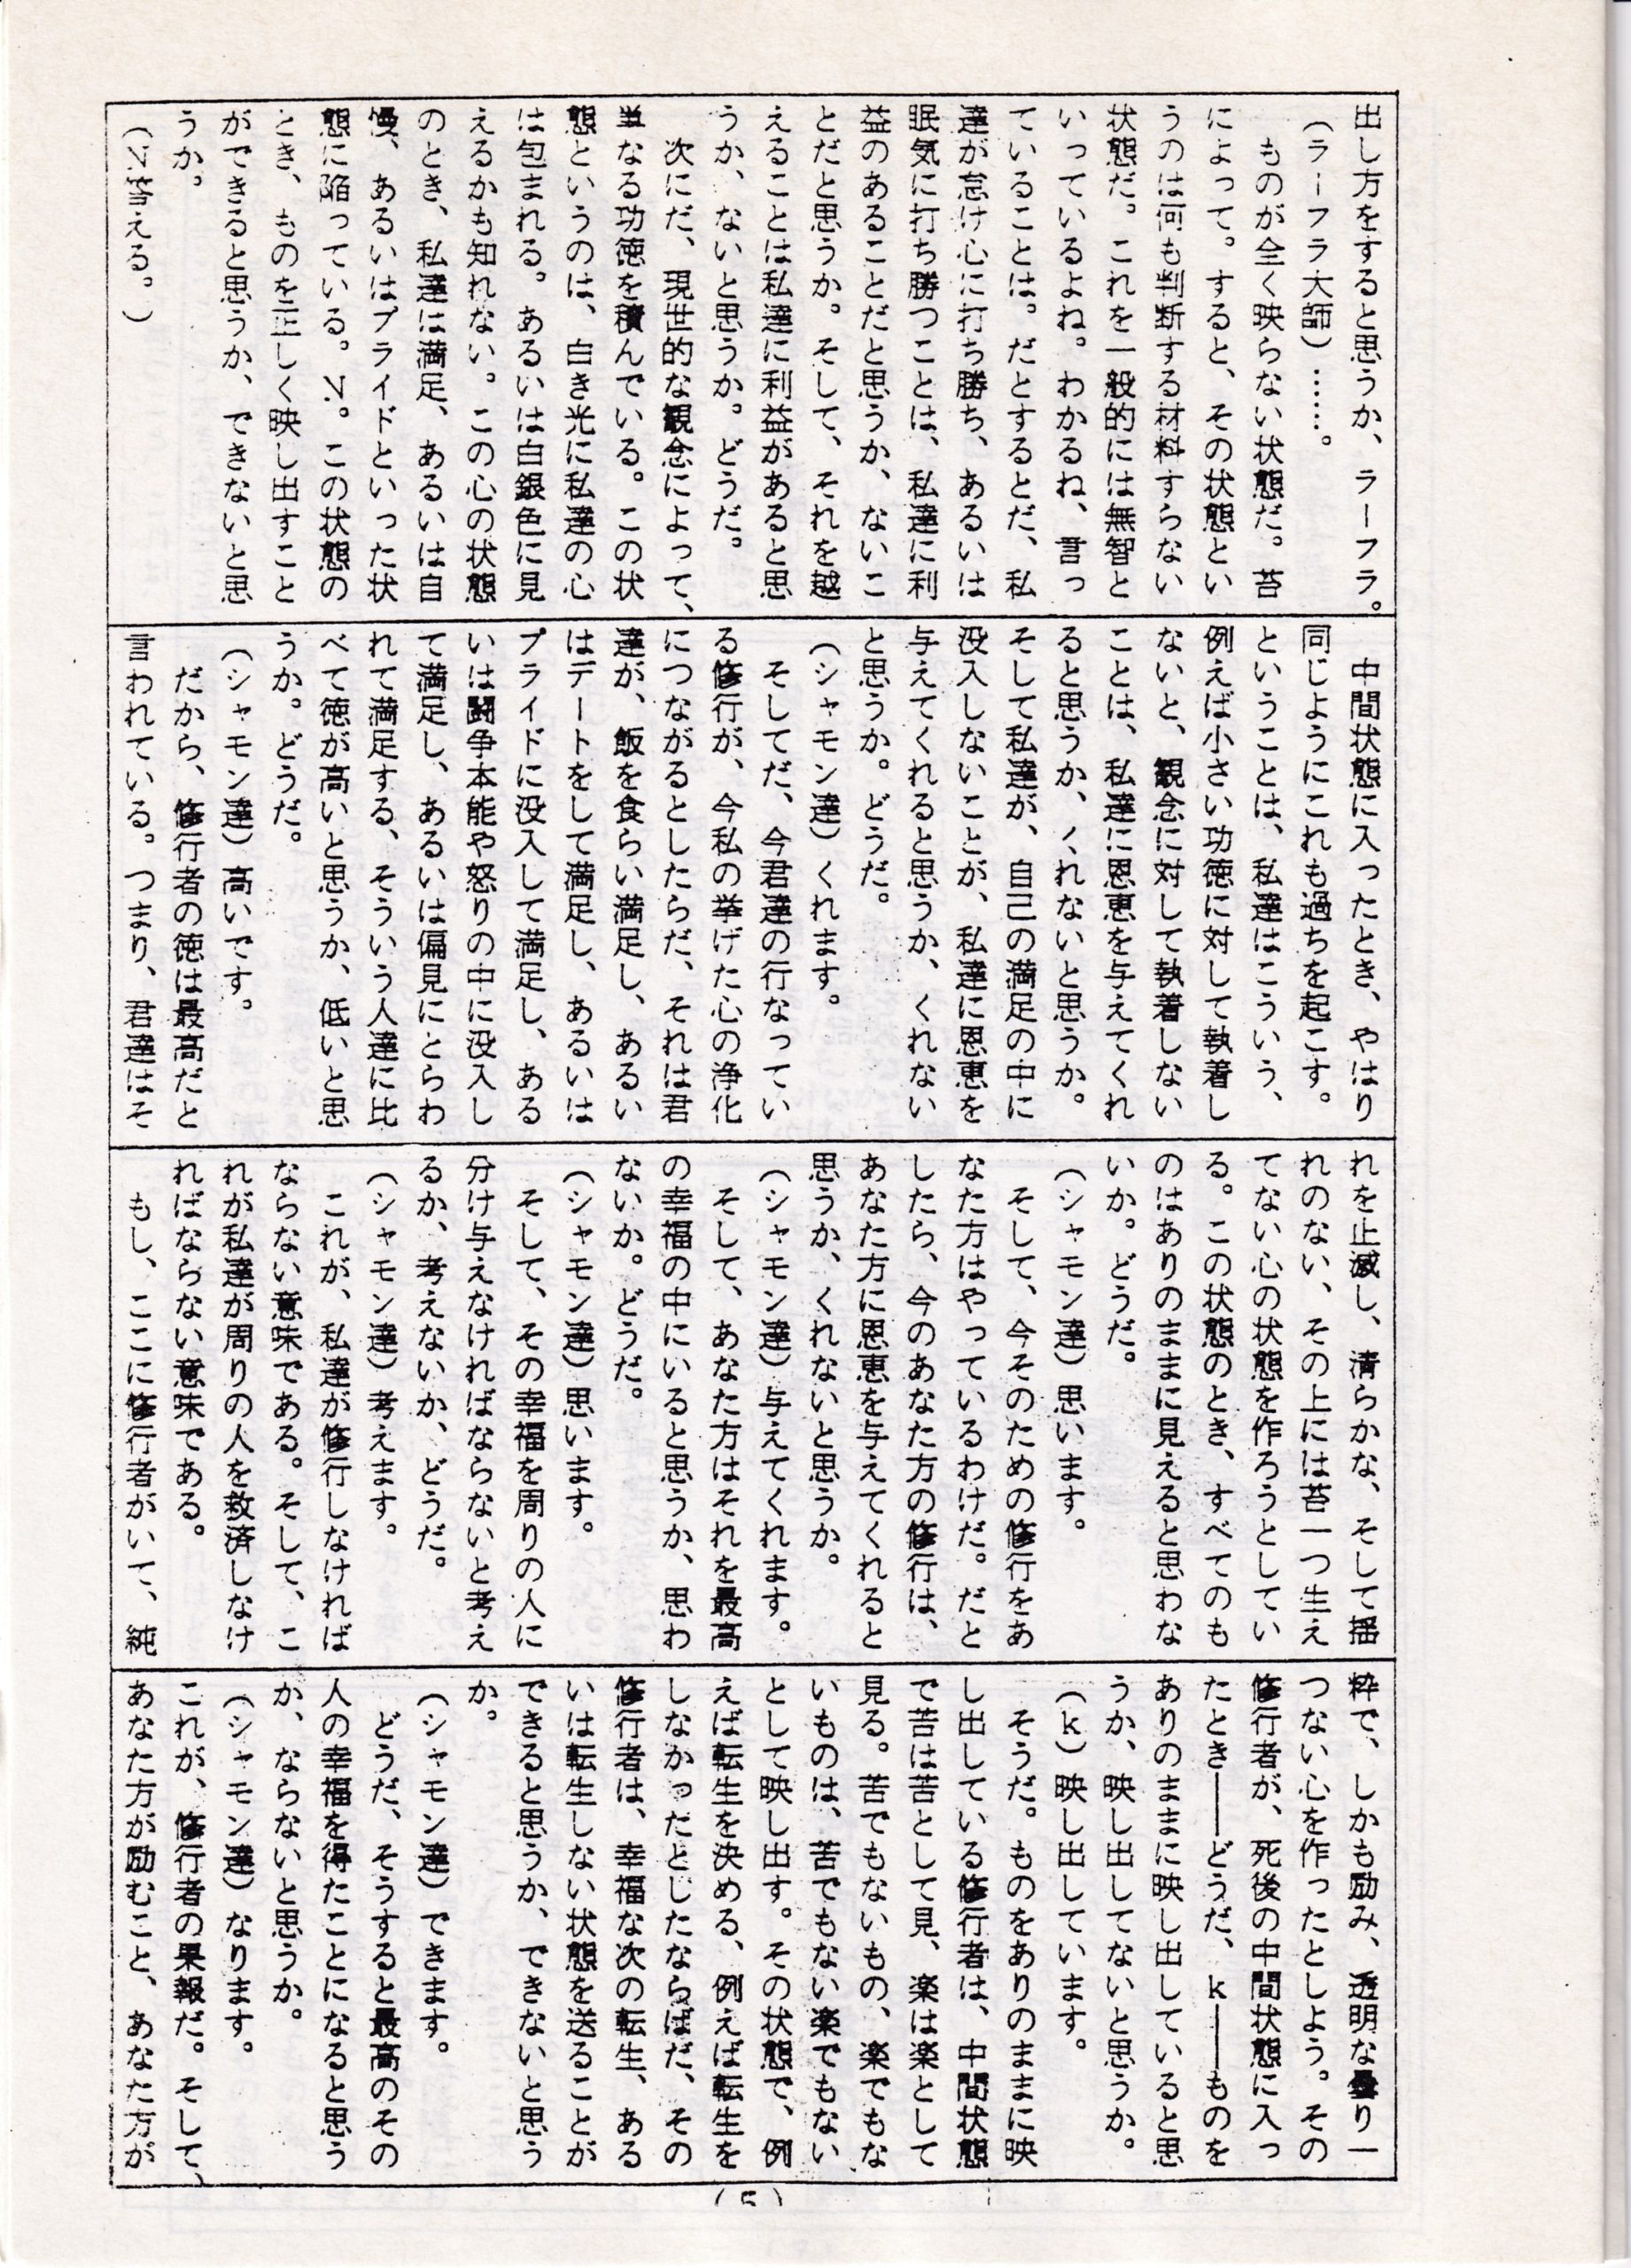 出し方をすると思うか、ラーフラ。
（ラーフラ大師）……。
ものが全く映らない状態だ。苔
によって。すると、その状態とい
うのは何も判断する材料すらない
状態だ。これを一般的には無智と
いっているよね。わかるね、言っ
ていることは。だとするとだ、私
達が怠け心に打ち勝ち、あるいは
眠気に打ち勝つことは、私達に利
益のあることだと思うか、ないこ
とだと思うか。そして、それを越
えることは私達に利益があると思
うか、ないと思うか。どうだ。
次にだ、現世的な観念によって、
単なる功徳を積んでいる。この状
態というのは、白き光に私達の心
は包まれる。あるいは白銀色に見
えるかも知れない。この心の状態
のとき、私達は満足、あるいは自
慢、あるいはプライドといった状
態に陥っている。N。この状態の
とき、ものを正しく映し出すこと
ができると思うか、できないと思
うか。
（N答える。）
中間状態に入ったとき、やはり
同じようにこれも過ちを起こす。
ということは、私達はこういう、
例えば小さい功徳に対して執着し
ないと、観念に対して執着しない
ことは、私達に恩恵を与えてくれ
ると思うか、くれないと思うか。
そして私達が、自己の満足の中に
没入しないことが、私達に恩恵を
与えてくれると思うか、くれない
と思うか。どうだ。
（シャモン達）くれます。
そしてだ、今君達の行なってい
る修行が、今私の挙げた心の浄化
につながるとしたらだ、それは君
達が、飯を食らい満足し、あるい
はデートをして満足し、あるいは
プライドに没入して満足し、ある
いは闘争本能や怒りの中に没入し
て満足し、あるいは偏見にとらわ
れて満足する、そういう人達に比
べて徳が高いと思うか、低いと思
うか。どうだ。
（シャモン達）高いです。
だから、修行者の徳は最高だと
言われている。つまり、君達はそ
れを止滅し、清らかな、そして揺
れのない、その上には苔一つ生え
てない心の状態を作ろうとしてい
る。この状態のとき、すべてのも
のはありのままに見えると思わな
いか。どうだ。
（シャモン達）思います。
そして、今そのための修行をあ
なた方はやっているわけだ。だと
したら、今のあなた方の修行は、
あなた方に恩恵を与えてくれると
思うか、くれないと思うか。
（シャモン達）与えてくれます。
そして、あなた方はそれを最高
の幸福の中にいると思うか、思わ
ないか。どうだ。
（シャモン達）思います。
そして、その幸福を周りの人に
分け与えなければならないと考え
るか、考えないか、どうだ。
（シャモン達）考えます。
これが、私達が修行しなければ
ならない意味である。そして、こ
れが私達が周りの人を救済しなけ
ればならない意味である。
もし、ここに修行者がいて、純
粋で、しかも励み、透明な曇り一
つない心を作ったとしよう。その
修行者が、死後の中間状態に入っ
たとき――どうだ、k――ものを
ありのままに映し出していると思
うか、映し出してないと思うか。
（k）映し出しています。
そうだ。ものをありのままに映
し出している修行者は、中間状態
で苦は苦として見、楽は楽として
見る。苦でもないもの、楽でもな
いものは、苦でもない楽でもない
として映し出す。その状態で、例
えば転生を決める、例えば転生を
しなかったとしたならばだ、その
修行者は、幸福な次の転生、ある
いは転生しない状態を送ることが
できると思うか、できないと思う
か。
（シャモン達）できます。
どうだ、そうすると最高のその
人の幸福を得たことになると思う
か、ならないと思うか。
（シャモン達）なります。
これが、修行者の果報だ。そして、
あなた方が励むこと、あなた方が
（5）